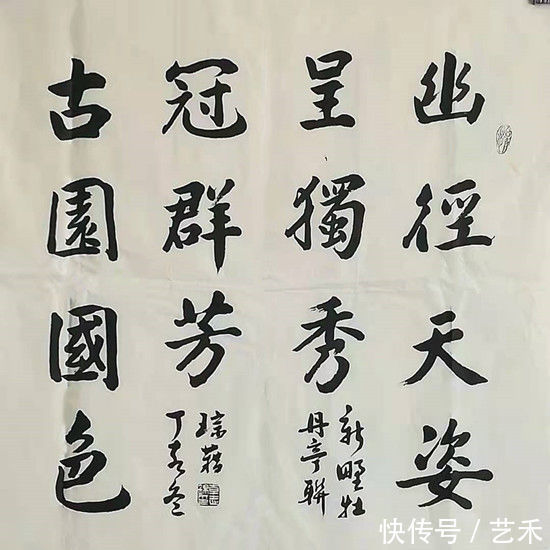 幽徑天姿
呈獨秀
新野牡
丹亭聯
古園國色
冠群芳
快传号/艺禾